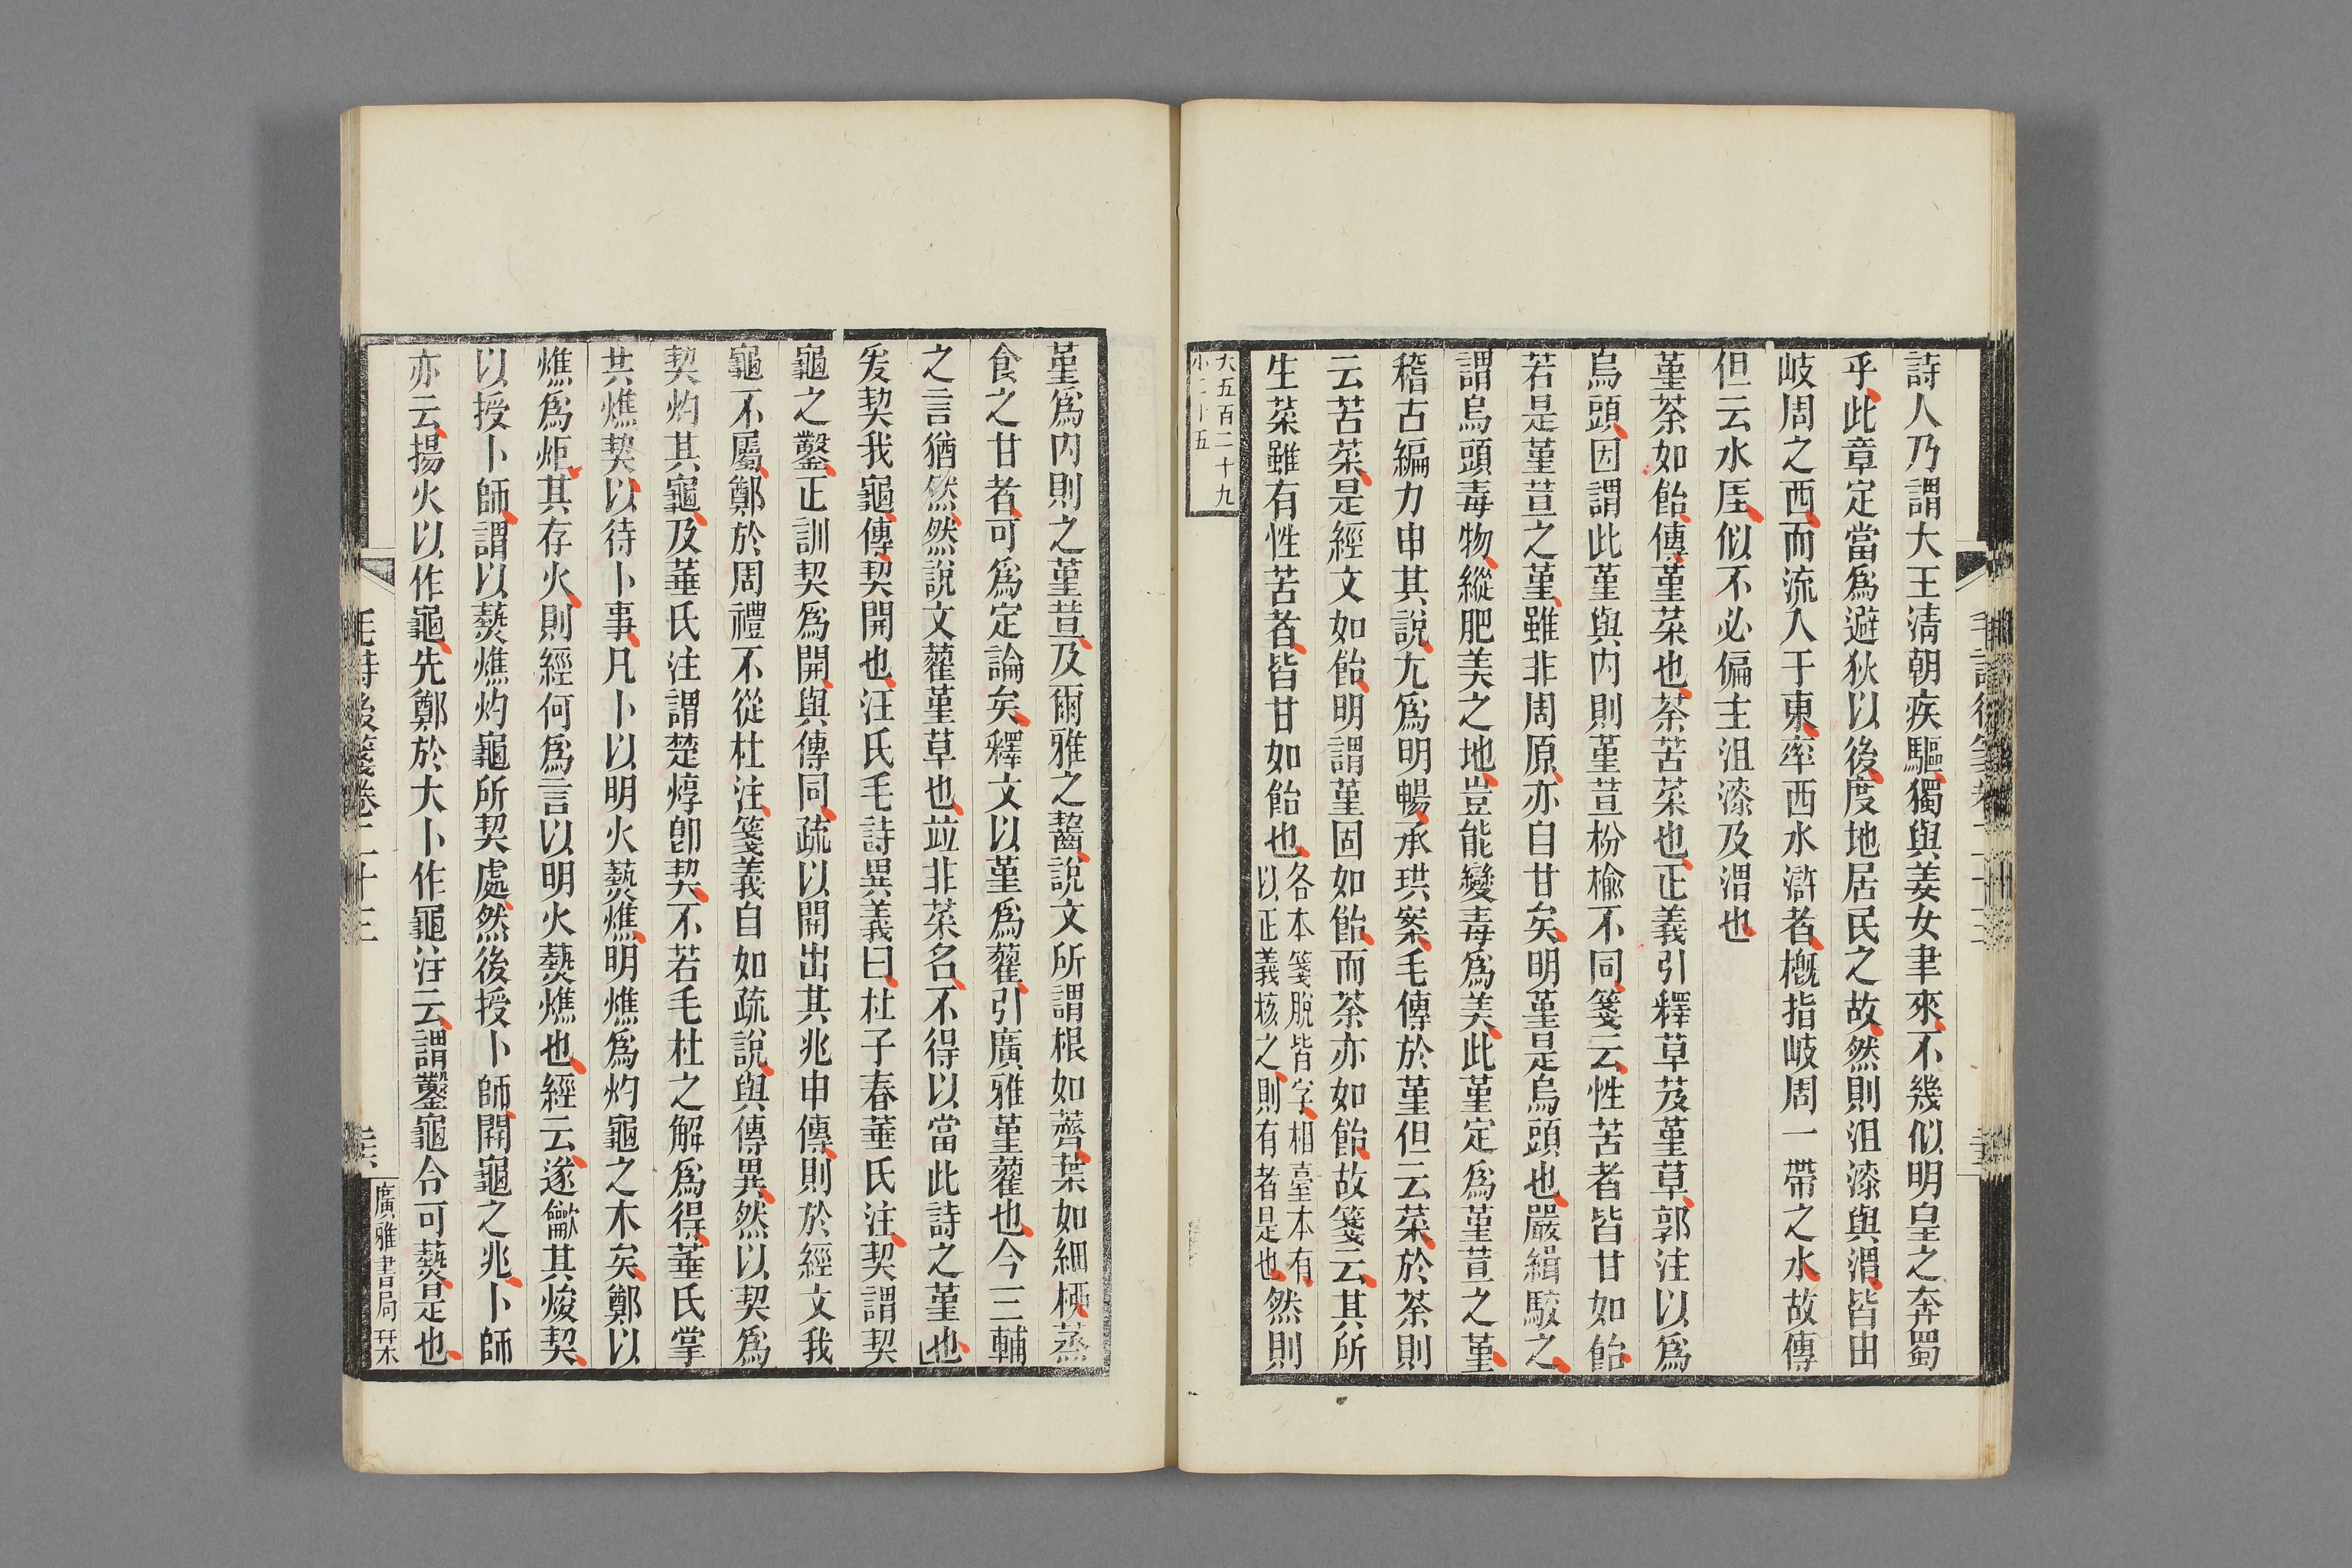 詩人乃謂大王清朝疾驅獨與姜女聿來不幾似明皇之奔蜀
乎此章定當爲避狄以後度地居民之故然則沮漆與渭皆由
岐周之西而流入于東率西水滸者槪指岐周一帶之水故傳
但云水厓似不必偏主沮漆及渭也
堇荼如飴傳堇菜也荼苦菜也正義引釋草芨堇草郭注以爲
烏頭因謂此堇與內則堇荁枌楡不同箋云性苦者皆甘如飴
若是堇荁之堇雖非周原亦自甘矣明堇是烏頭也嚴緝駮之
謂烏頭毒物縱肥美之地豈能變毒爲美此堇定爲堇荁之堇
稽古編力申其說尢爲明暢承珙案毛傳於堇但云菜於荼則
云苦菜是經文如飴明謂堇固如飴而荼亦如飴故箋云其所
生菜雖有性苦者皆甘如飴也各本箋脫皆字相臺本有以正義核之則有者是也然則
大五百二十九
小二十五
堇爲內則之堇荁及爾雅之齧說文所謂根如薺葉如細桺蒸
食之甘者可爲定論矣釋文以堇爲藋引廣雅堇藋也今三輔
之言猶然然說文藋堇草也竝非菜名不得以當此詩之堇也
爰契我龜傳契開也汪氏毛詩異義曰杜子春菙氏注契謂契
龜之鑿正訓契爲開與傳同疏以開出其兆申傳則於經文我
龜不屬鄭於周禮不從杜注箋義自如疏說與傳異然以契爲
契灼其龜及菙氏注謂楚焞卽契不若毛杜之解爲得菙氏掌
共燋契以待卜事凡卜以明火爇燋明燋爲灼龜之木矣鄭以
燋爲炬其存火則經何爲言以明火爇燋也經云遂龡其焌契
以授卜師謂以爇燋灼龜所契處然後授卜師開龜之兆卜師
亦云揚火以作龜先鄭於大卜作龜注云謂鑿龜令可爇是也
毛詩後箋卷二十三
廣雅書局栞